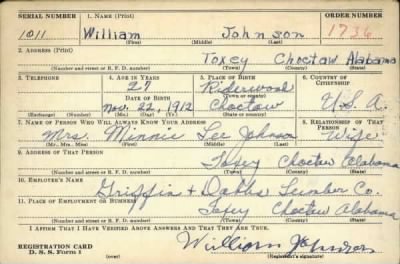 SERIAL NUMBER 1. NAME (Print) ORDER NUMBER
1011 William Johnson 1736
(First) (Middle) (Last)
2. ADDRESS (Print)
Toxey Choctaw Alabama
(Number and street or R. F. D. number) (Town) (County) (State)
3. TELEPHONE 4. AGE IN YEARS 5. PLACE OF BIRTH 6. COUNTRY OF CITIZENSHIP
27 Riderwood
(Town or county)
DATE OF BIRTH
Nov. 22, 1912 Choctaw U.S.A.
(Exchange) (Number) (Mo.) (Day) (Yr.) (State or country)
7. NAME OF PERSON WHO WILL ALWAYS KNOW YOUR ADDRESS 8. RELATIONSHIP OF THAT PERSON
Mrs. Minnie Lee Johnson Wife
(Mr., Mrs., Miss) (First) (Middle) (Last)
9. ADDRESS OF THAT PERSON
Toxey Choctaw Alabama
(Number and street or R. F. D. number) (Town) (County) (State)
10. EMPLOYER'S NAME
Griffin & Dobbs Lumber Co.
11. PLACE OF EMPLOYMENT OR BUSINESS
Toxey Choctaw Alabama
(Number and street or R. F. D. number) (Town) (County) (State)
I AFFIRM THAT I HAVE VERIFIED ABOVE ANSWERS AND THAT THEY ARE TRUE.
REGISTRATION CARD
D. S. S. Form 1 William Johnson
(Registrant's signature)